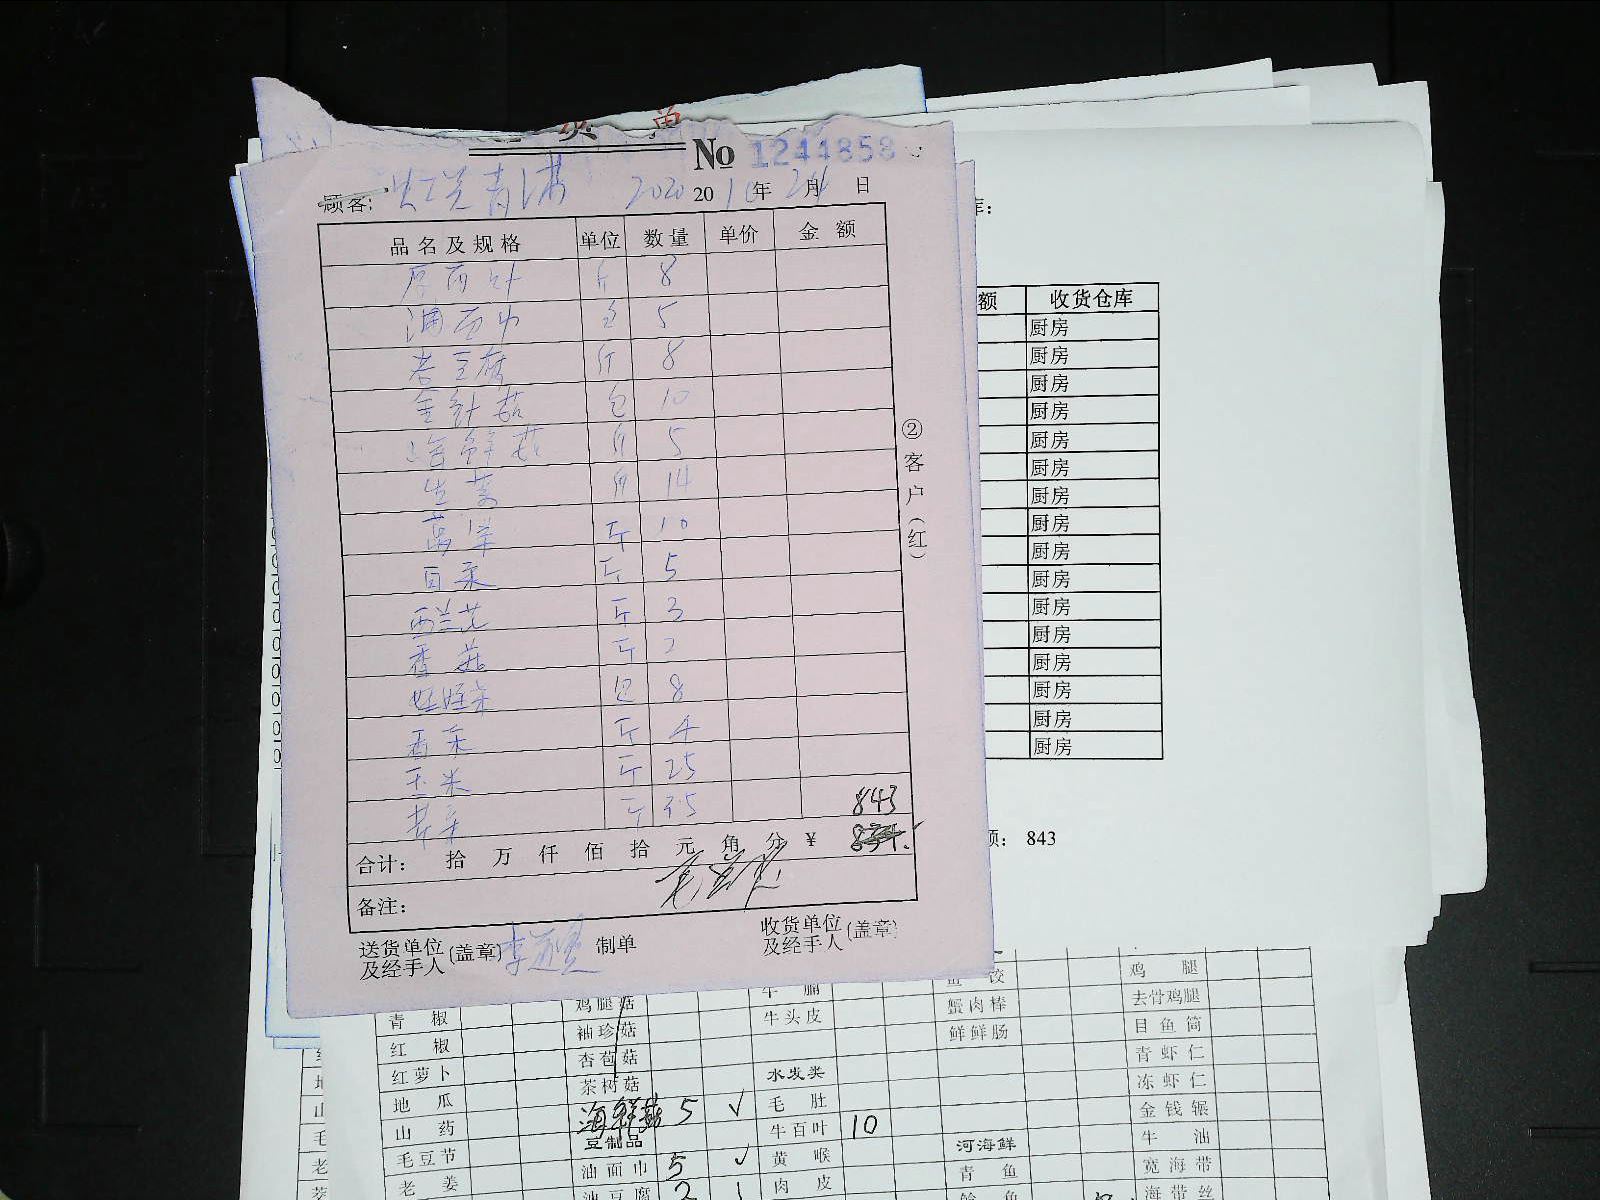 No 1244858
顾客: 2020 20 10 年 24 月 日
品名及规格 单位 数量 单价 金额
斤 8
油面巾 包 5
老豆腐 斤 8
金针菇 包 10
海鲜菇 斤 5
生菜 斤 14
茼蒿 斤 10
白菜 斤 5
西兰花 斤 3
香菇 斤 2
娃娃菜 包 8
香菜 斤 4
玉米 斤 25
斤 3.5
843
合计: 拾 万 仟 佰 拾 元 角 分 ¥
备注:
送货单位及经手人 (盖章) 制单 收货单位及经手人 (盖章)
②客户(红)
库:
额 收货仓库
厨房
厨房
厨房
厨房
厨房
厨房
厨房
厨房
厨房
厨房
厨房
厨房
厨房
厨房
厨房
厨房
额: 843
鸡腿菇 牛腩 鱼饺 鸡腿
青椒 袖珍菇 牛头皮 蟹肉棒 去骨鸡腿
红椒 杏苞菇 鲜鲜肠 目鱼筒
红萝卜 茶树菇 水发类 青虾仁
地瓜 海鲜菇 5 √ 毛肚 冻虾仁
山药 豆制品 牛百叶 10 金钱辗
毛豆节 油面巾 5 √ 黄喉 河海鲜 牛油
老姜 油豆腐 2 肉皮 青鱼 宽海带
海带丝